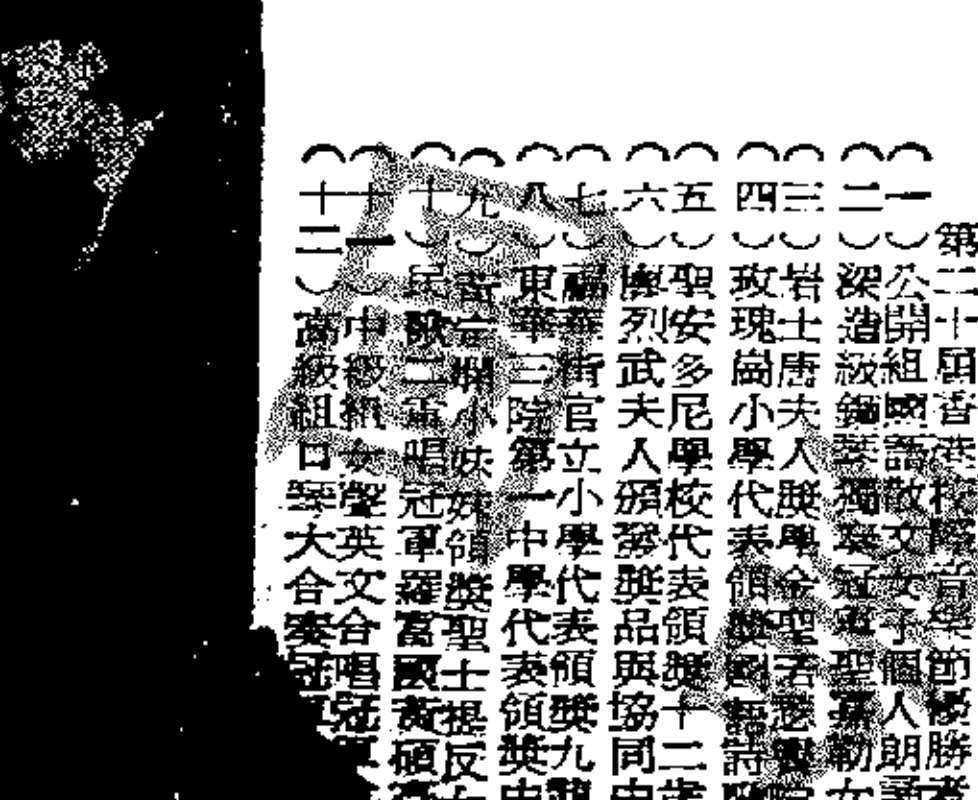 第二十屆香港校際音樂節優勝者
(一)公開組國語散文女子個人朗誦
(二)深造級鋼琴獨奏冠軍聖嘉勒女
(三)岩士唐夫人獎學金聖若瑟書院
(四)玫瑰崗小學代表領獎國語詩
(五)聖安多尼學校代表領獎十二歲
(六)烈武夫人頒發獎品與協同中
(七)福華街官立小學代表領獎九龍
(八)東華三院第一中學代表領獎中
(九)嫻小妹妹領獎聖士提反女
(十)民歌二重唱冠軍羅富國黃碩
(十一)中級組女聲英文合唱冠軍
(十二)高級組口琴大合奏冠軍